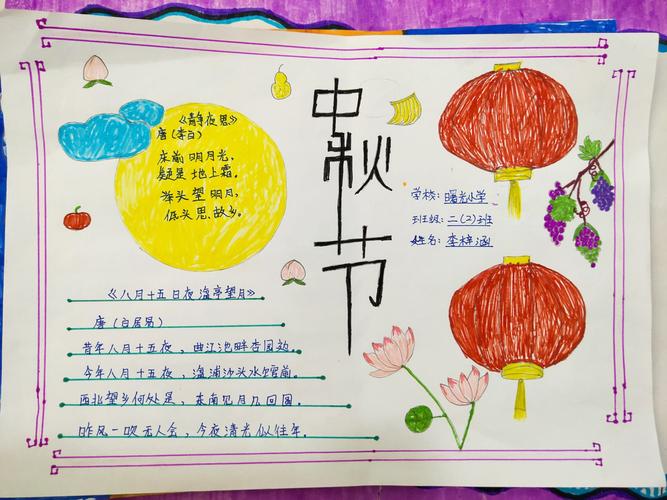 中秋节
《静夜思》
唐(李白)
床前明月光,
疑是地上霜。
举头望明月,
低头思故乡。
学校:曙光小学
班级:二(2)班
姓名:李梓涵
《八月十五日夜湓亭望月》
唐(白居易)
昔年八月十五夜,曲江池畔杏园边。
今年八月十五夜,湓浦沙头水馆前。
西北望乡何处是,东南见月几回圆。
昨风一吹无人会,今夜清光似往年。